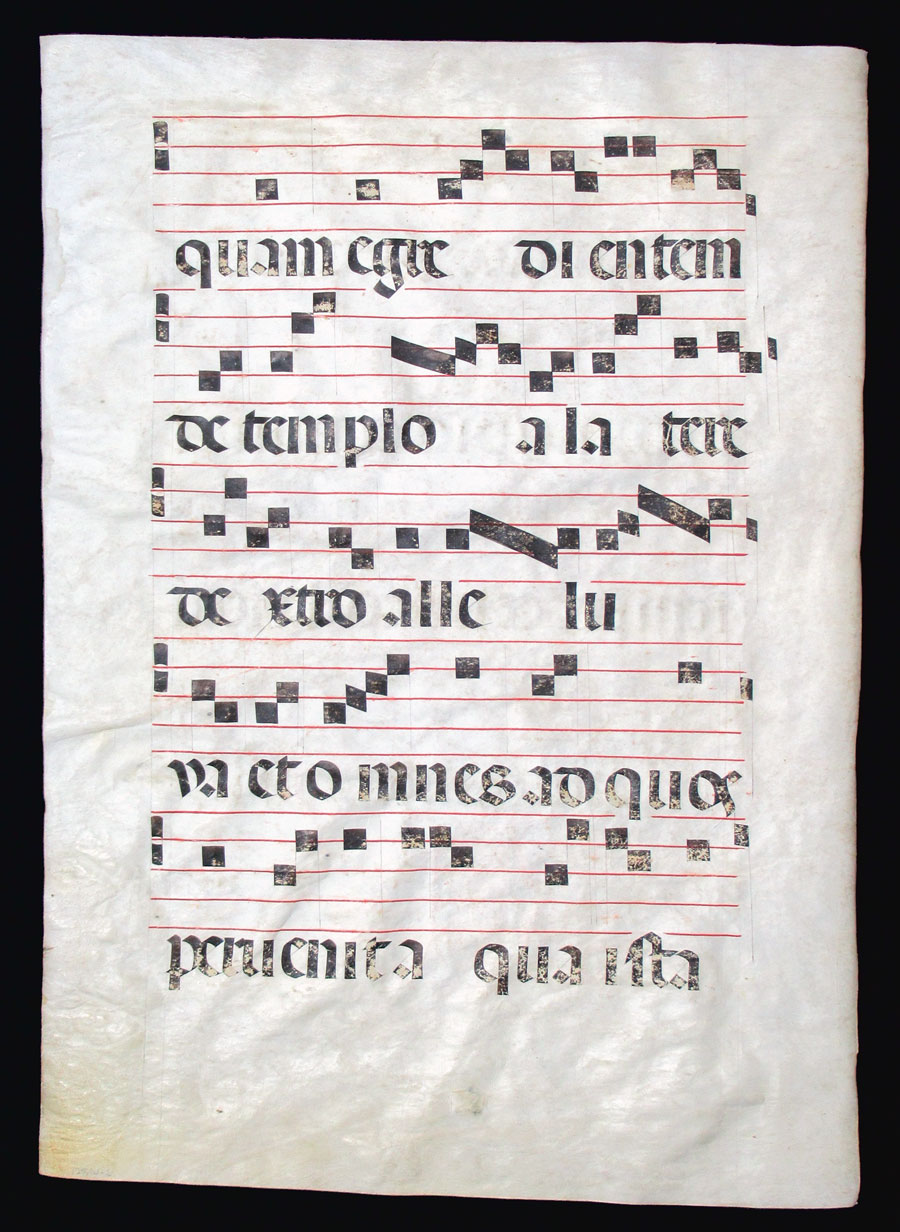 quam egre di entem
de templo a la tere
de xtro alle lu
ya et o mnes ad quos
peruenit a qua ista